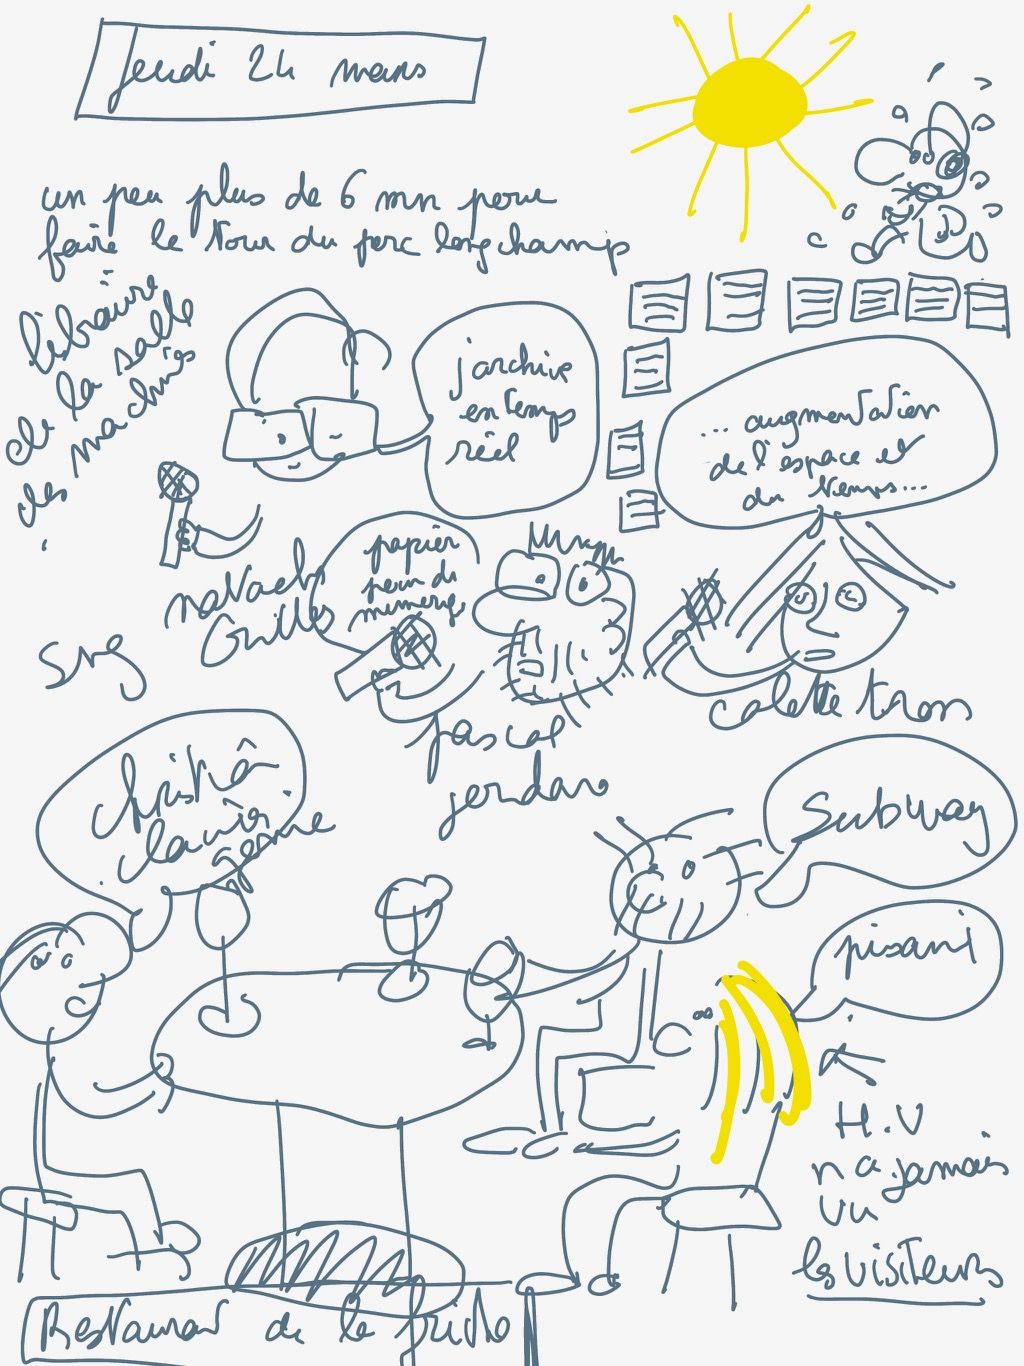 Jeudi 24 mars
un peu plus de 6 mn pour
faire le tour du parc longchamp
librairie
de la salle
des machines
j'archive
en temps
réel
... augmentation
de l'espace et
du temps...
papier
peint de
Natach
Guilles
Colette tron
pascal
jordano
Christia
clavier
genre
Subway
pisani
H.V
n a jamais
vu
les visiteurs
Restaurant de la friche